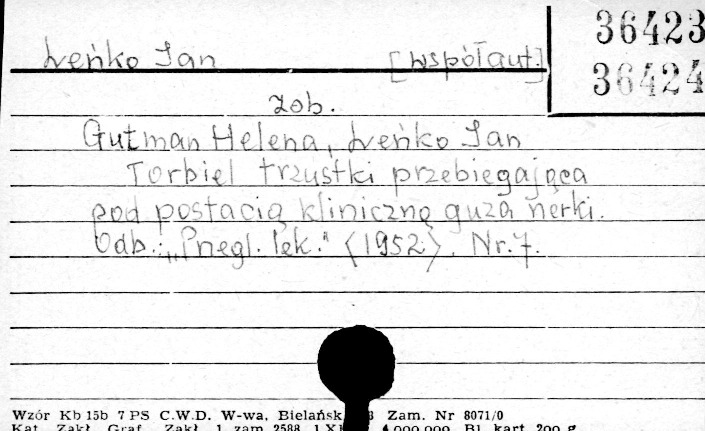 Leńko Jan [współaut.]
36423
36424
zob.
Gutman Helena, Leńko Jan
Torbiel trzustki przebiegająca
pod postacią kliniczną guza nerki.
Odb.: „Przegl. lek." <1952>. Nr. 7.
Wzór Kb 15b 7 PS C.W.D. W-wa, Bielańsk Zam. Nr 8071/0
Kat. Zakł. Graf. Zakł. 1 zam. 2588. 4.000.000. Bl. kart. 200 g